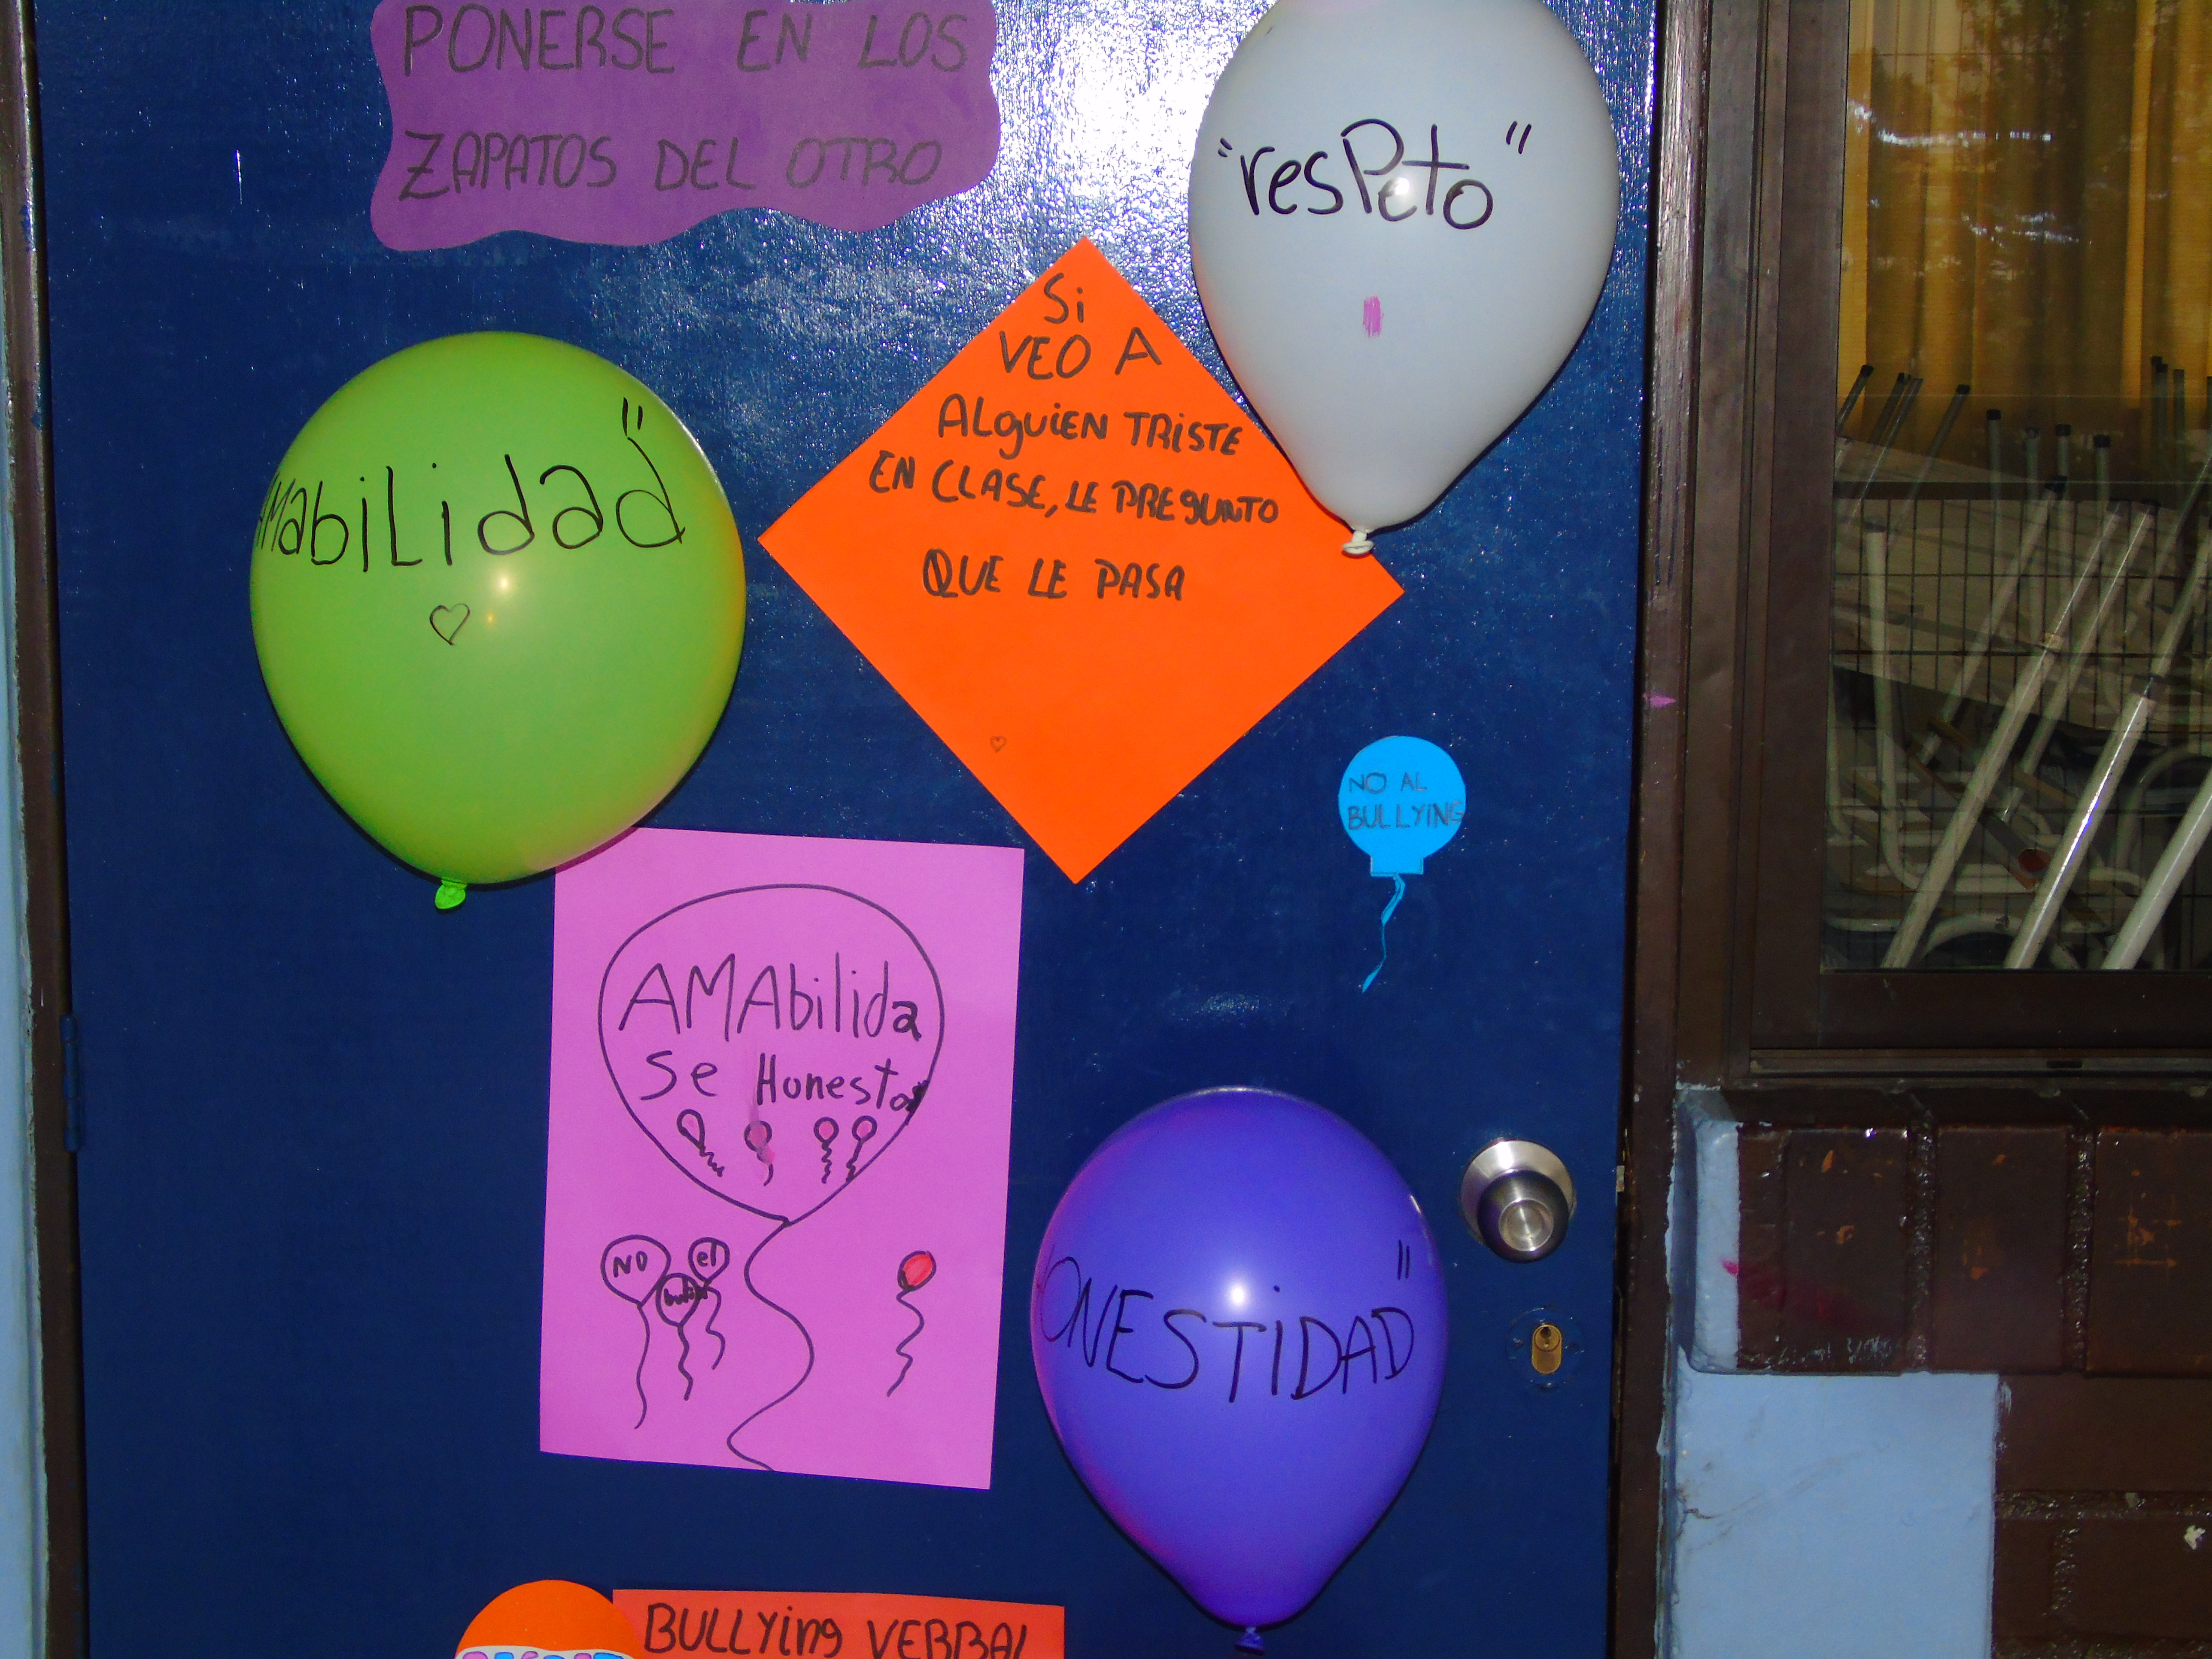 PONERSE EN LOS
ZAPATOS DEL OTRO
"resPeto"
Si
VEO A
ALguiEN TRiSTE
EN CLASE, LE PREgUNTO
QUE LE PASA
AMabiLidad"
NO AL
BULLYiNG
AMAbilida
se Honesto
NO
el
ONESTiDAD"
BULLYing VERBAL